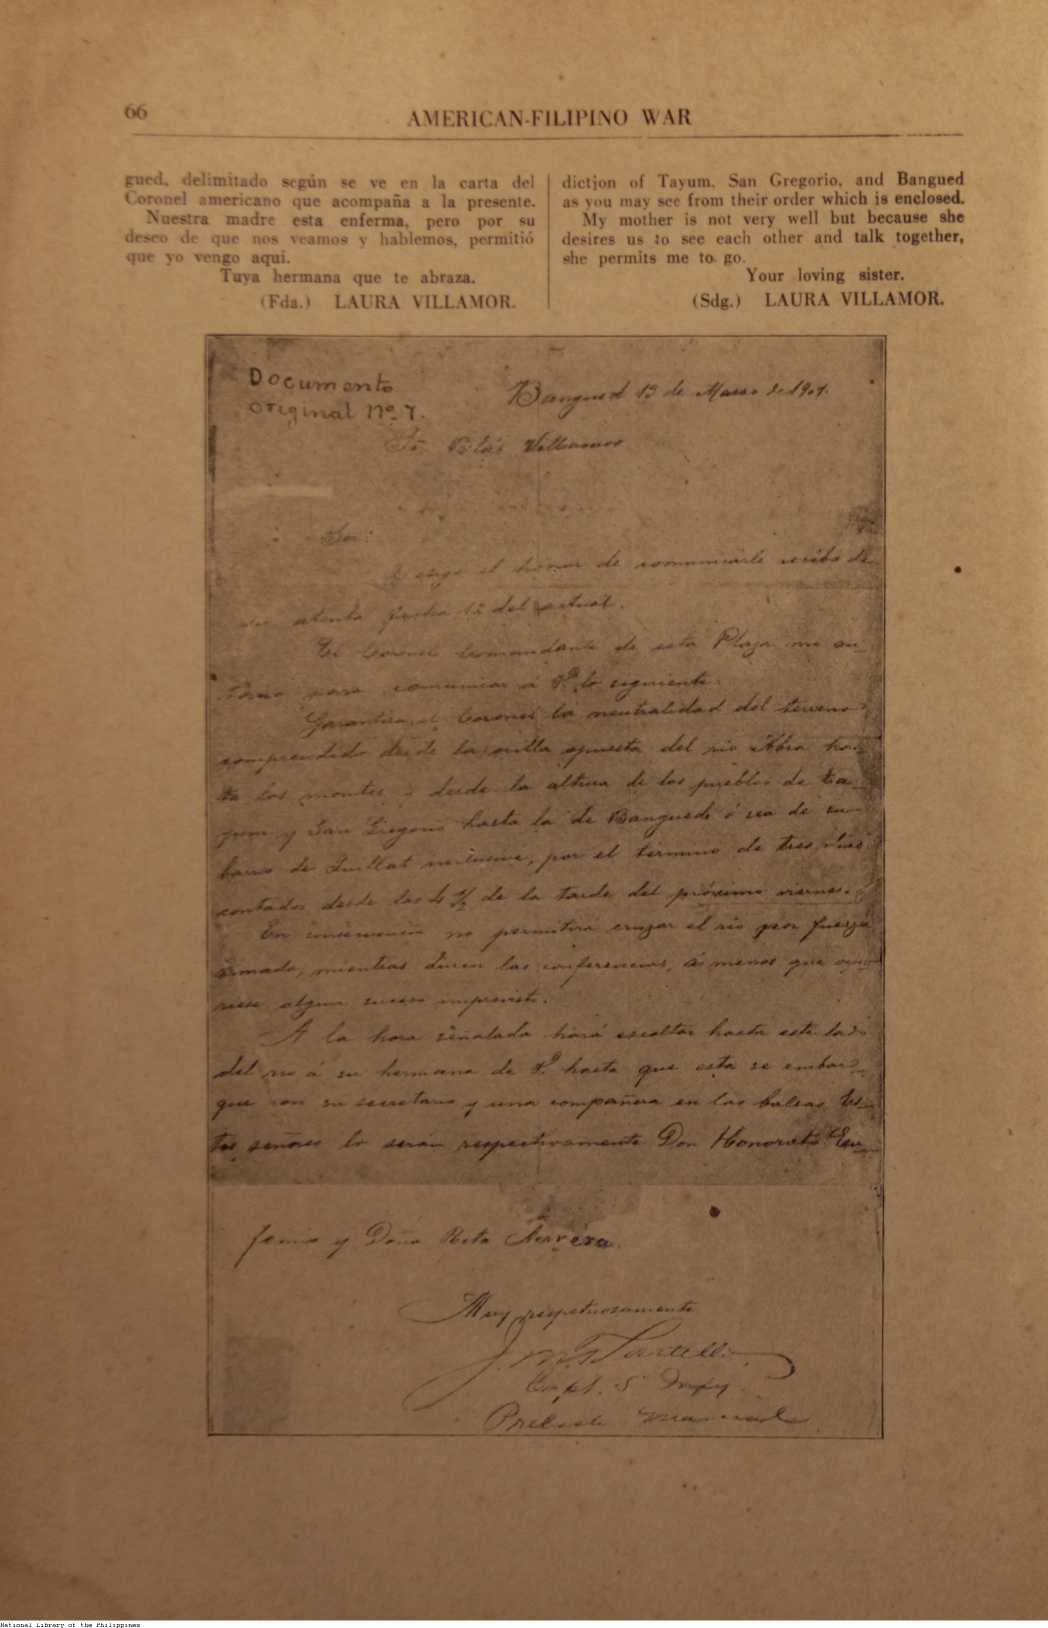 66
AMERICAN-FILIPINO WAR
gued, delimitado según se ve en la carta del
Coronel americano que acompaña a la presente.
Nuestra madre esta enferma, pero por su
deseo de que nos veamos y hablemos, permitió
que yo vengo aqui.
Tuya hermana que te abraza.
(Fda.) LAURA VILLAMOR.
diction of Tayum, San Gregorio, and Bangued
as you may see from their order which is enclosed.
My mother is not very well but because she
desires us to see each other and talk together,
she permits me to go.
Your loving sister.
(Sdg.) LAURA VILLAMOR.
Documento
Original No. 7.
Bangued 13 de Marzo de 1901.
Sr. Blas Villamor
Sor:
Tengo el honor de comunicarle recibo de
su atenta fecha 12 del actual.
El Coronel Comandante de esta Plaza me au-
toriza para comunicar á Vd. lo siguiente.
Garantiza el Coronel la neutralidad del terreno
comprendido desde la orilla opuesta del rio Abra has-
ta los montes y desde la altura de los pueblos de Ta-
yum y San Gregorio hasta la de Bangued ó sea de su
barrio de inclusive, por el término de tres dias
contados desde las 4 1/2 de la tarde del próximo viernes.
En consecuencia no permitirá cruzar el rio por fuerza
armada, mientras duren las conferencias, á menos que ocu-
rriese algun suceso imprevisto.
A la hora señalada hará escoltar hasta este lado
del rio á su hermana de V. hasta que esta se embar-
que con su secretario y una compañera en las balsas. Es-
tos señores lo serán respectivamente Don Honorato Eu-
femio y Doña Rita
Muy respetuosamente
J. M.
Capt. 5 Infy